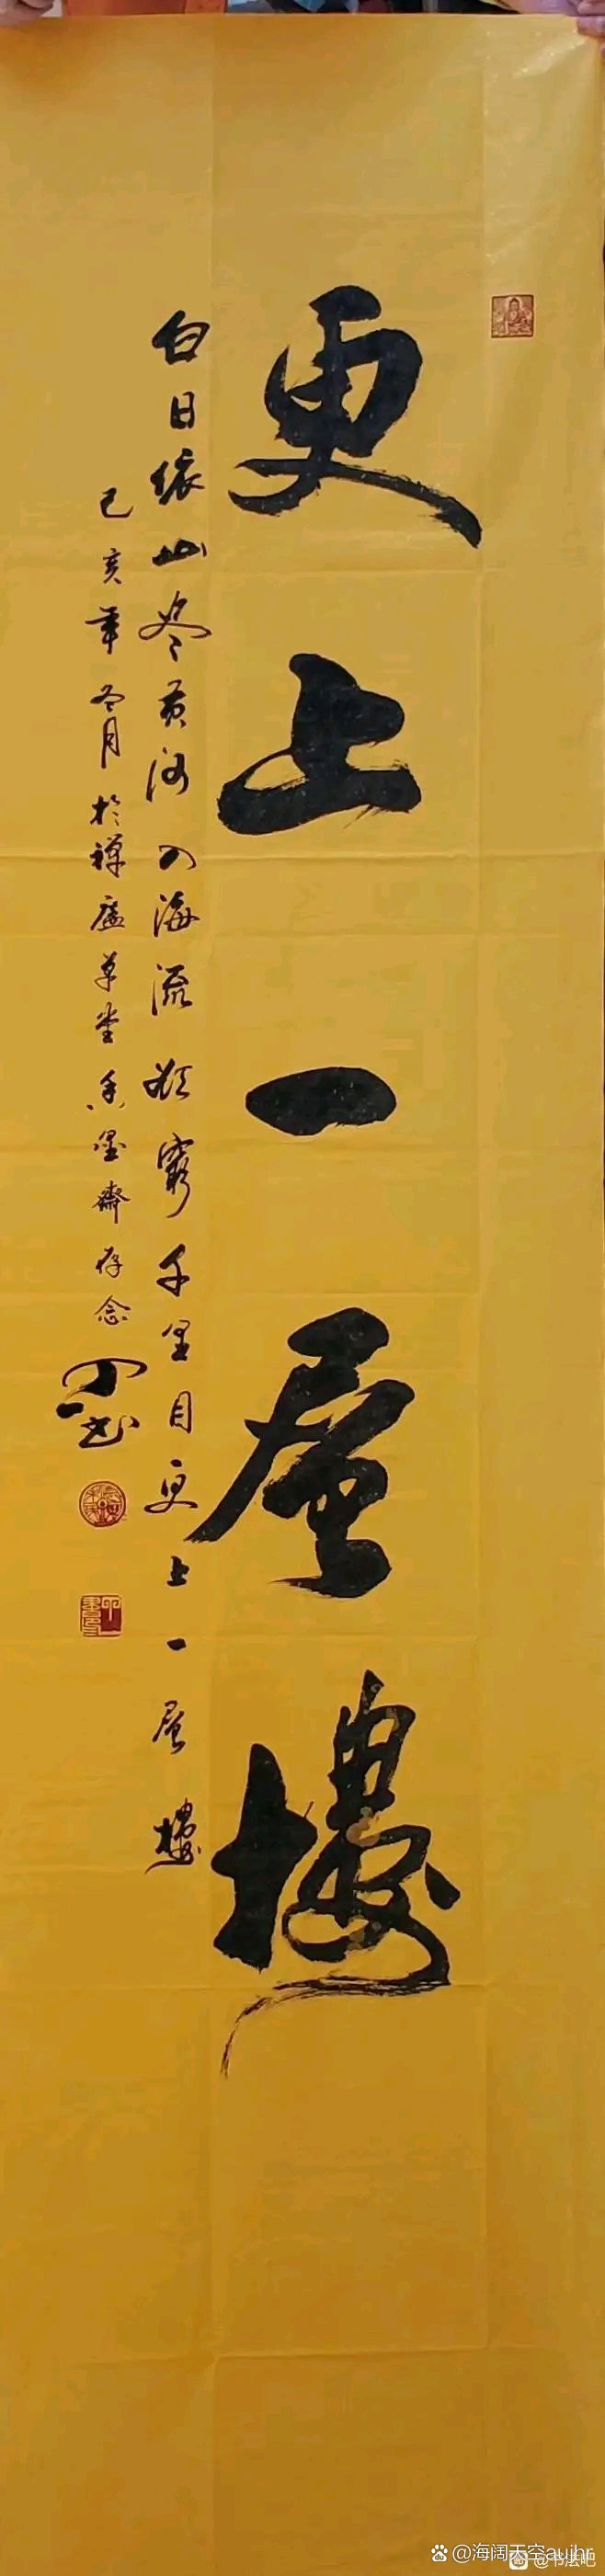 更上一層樓
白日依山尽黄河入海流欲穷千里目更上一層樓
己亥年冬月於禅庐草堂香墨斋存念
一书
@海阔天空aujhr
@书法吧